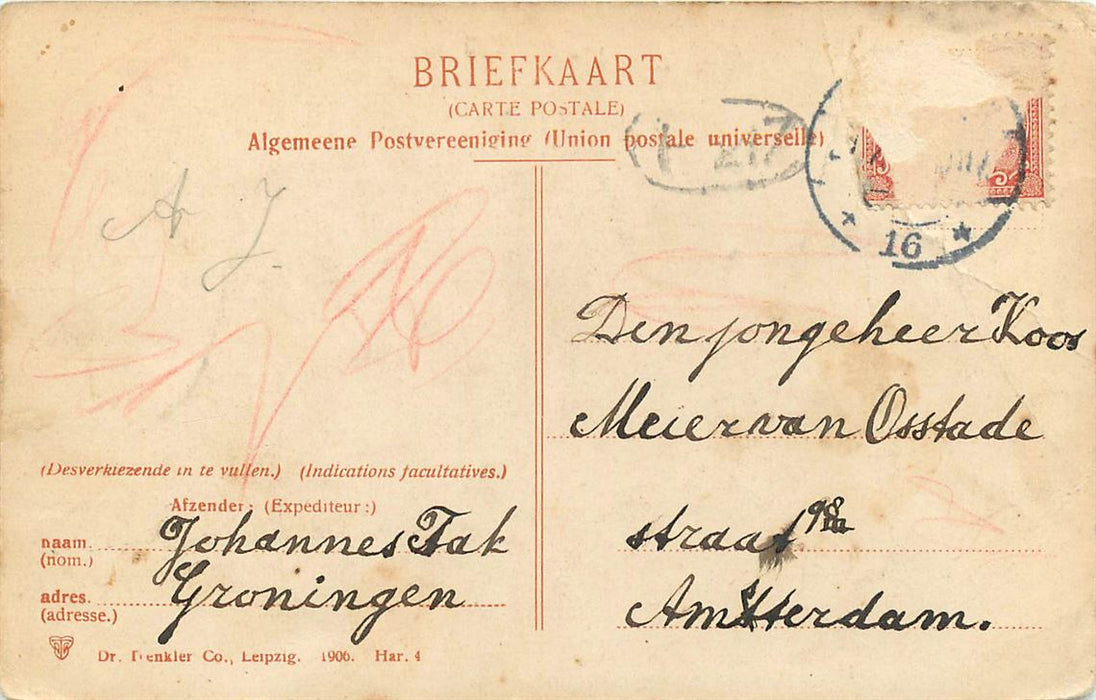 BRIEFKAART
(CARTE POSTALE)
Algemeene Postvereeniging (Union postale universelle)
16
Den jongeheer Koos
Meier van Osstade
straat 98
Amsterdam.
(Desverkiezende in te vullen.) (Indications facultatives.)
Afzender: (Expéditeur:)
naam. Johannes Tak
(nom.)
adres. Groningen
(adresse.)
Dr. Trenkler Co., Leipzig. 1906. Har. 4